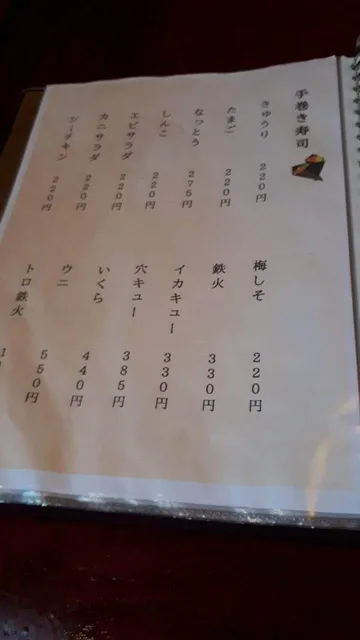 手巻き寿司
きゅうり 220円
たまご 220円
なっとう 275円
しんこ 220円
エビサラダ 220円
カニサラダ 220円
シーチキン 220円
梅しそ 220円
鉄火 330円
イカキュー 330円
穴キュー 385円
いくら 440円
ウニ 550円
トロ鉄火